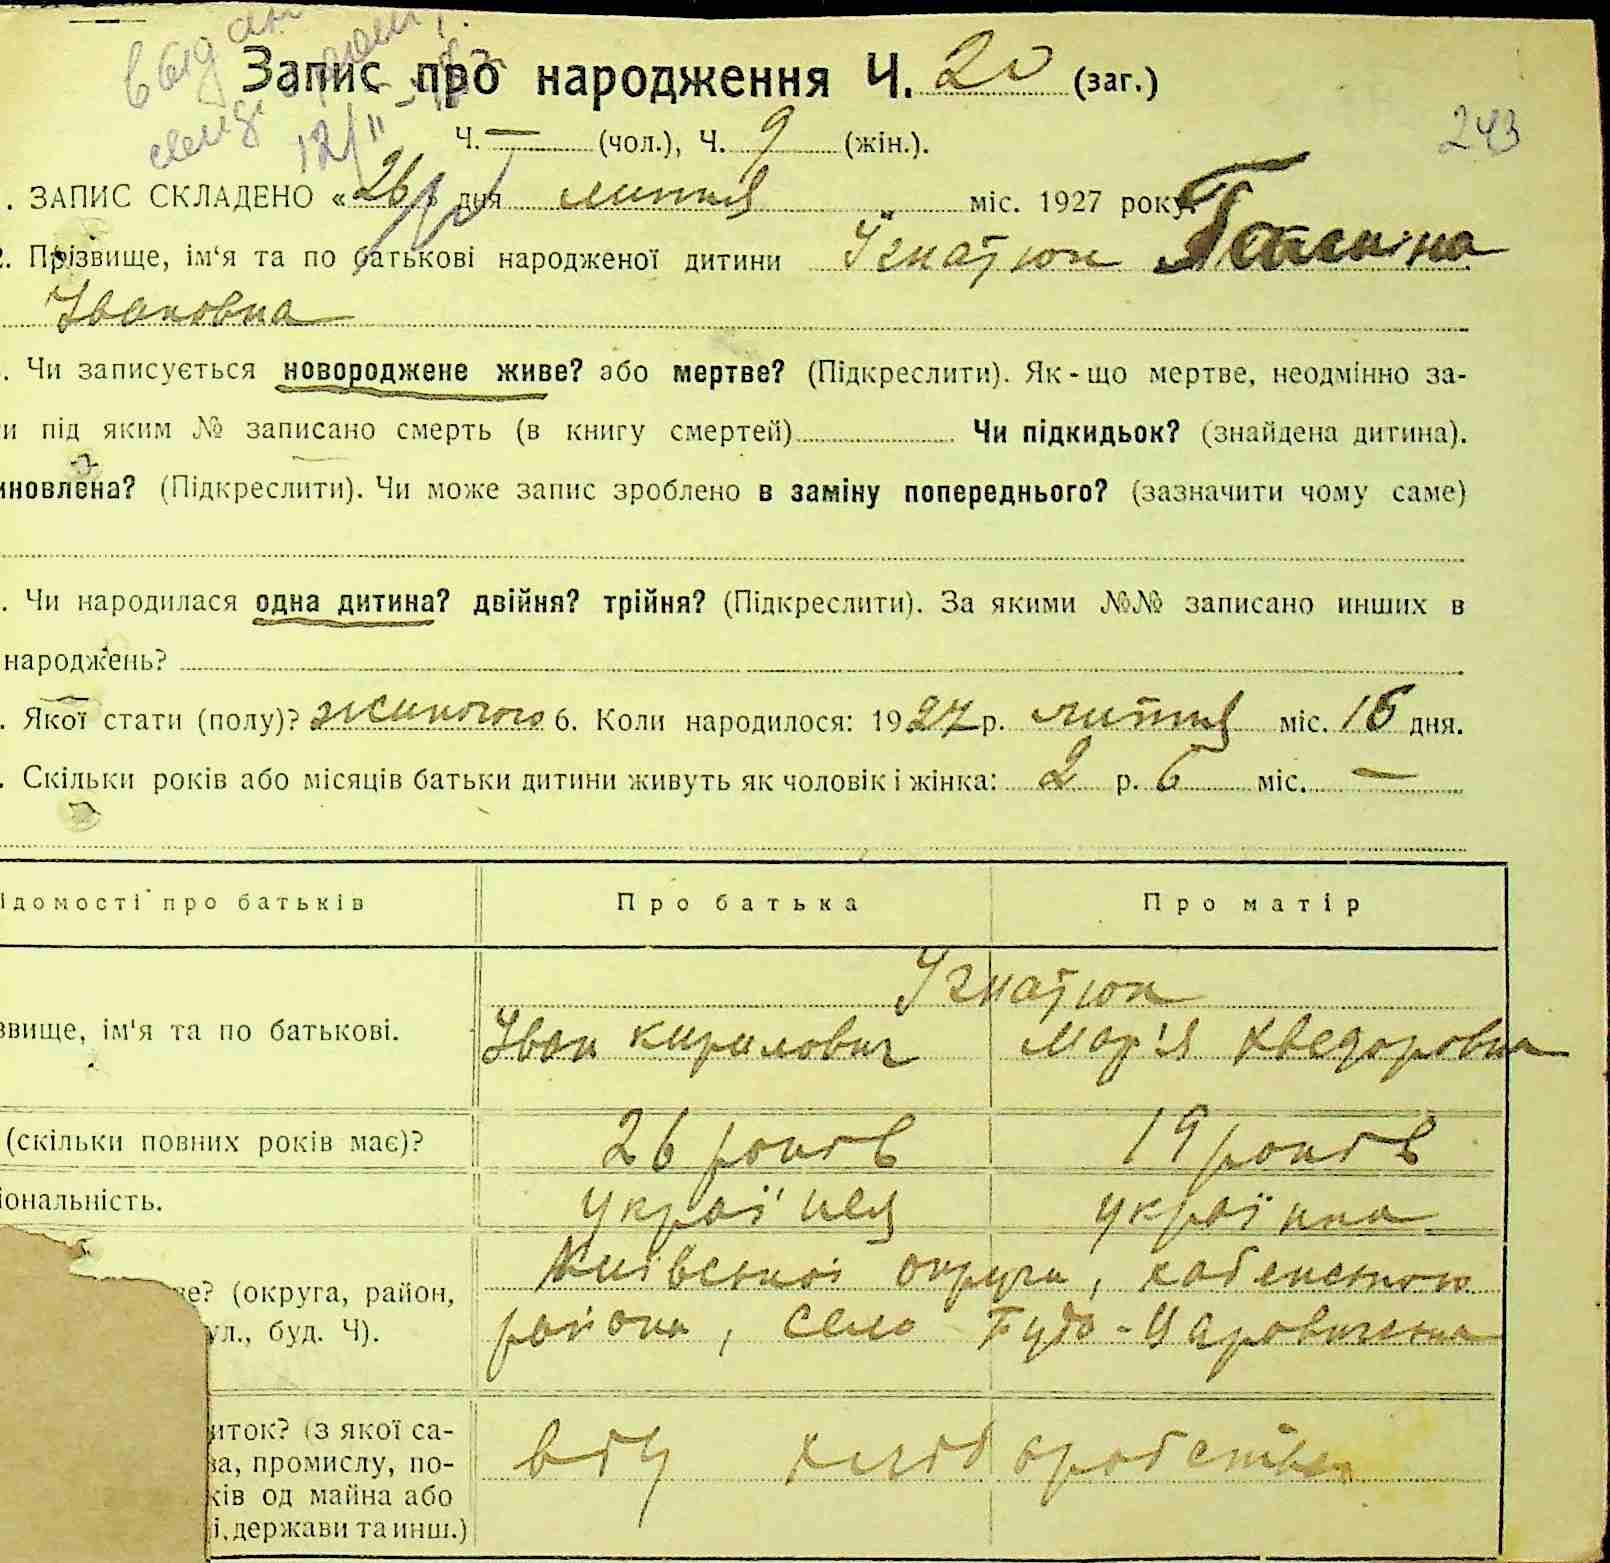 видан
12/II
Запис про народження Ч. 20 (заг.)
Ч. — (чол.), Ч. 9 (жін.).
243
. ЗАПИС СКЛАДЕНО «26» дня липня міс. 1927 року.
2. Прізвище, ім'я та по батькові народженої дитини Ігнатюк
Івановна
. Чи записується новороджене живе? або мертве? (Підкреслити). Як-що мертве, неодмінно за-
и під яким № записано смерть (в книгу смертей) Чи підкидьок? (знайдена дитина).
иновлена? (Підкреслити). Чи може запис зроблено в заміну попереднього? (зазначити чому саме)
. Чи народилася одна дитина? двійня? трійня? (Підкреслити). За якими №№ записано инших в
народжень?
. Якої стати (полу)? жиночого 6. Коли народилося: 1927 р. липня міс. 15 дня.
. Скільки років або місяців батьки дитини живуть як чоловік і жінка: 2 р. 6 міс. —
ідомості про батьків Про батька Про матір
Ігнатюк
звище, ім'я та по батькові. Іван Кирилович Мар'я Хведоровна
(скільки повних років має)? 26 років 19 років
іональність. українця українка
Київської округи, Хабенского
ве? (округа, район,
района, село Буда-Варовичська
ул., буд. Ч).
иток? (з якої са-
ва, промислу, по-
від хліборобства
ків од майна або
і, держави та инш.)